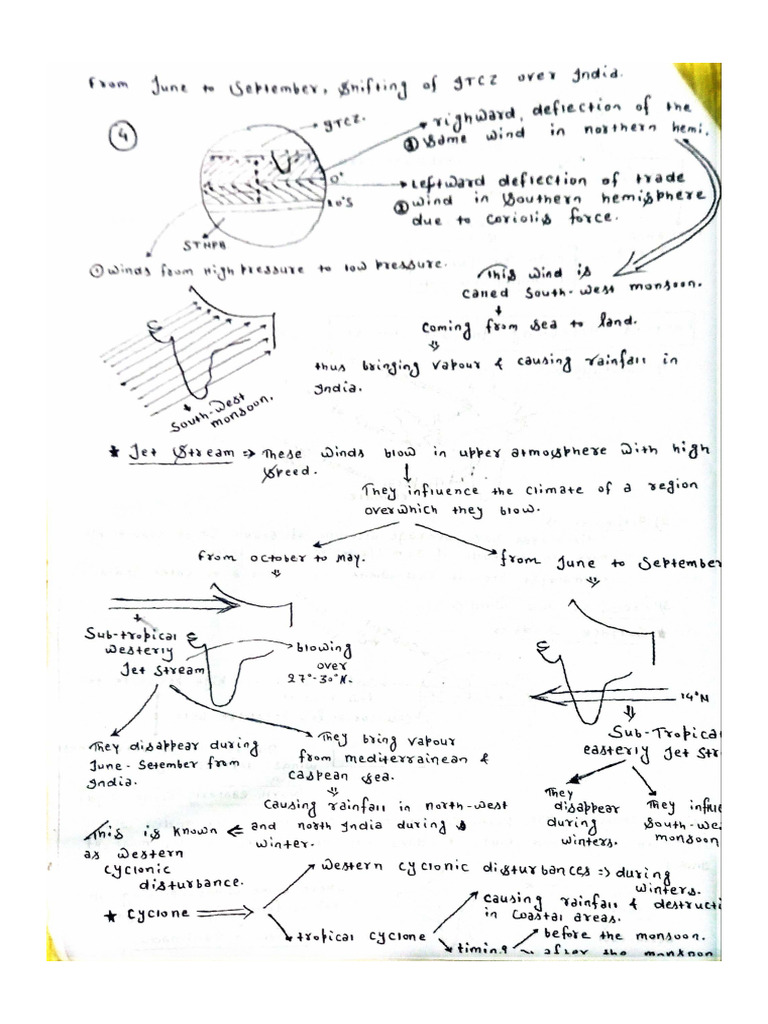 From June to September, Shifting of ITCZ over India.
④
ITCZ.
0°
STHPB
① Winds from High Pressure to low Pressure.
righward, deflection of the
③ Same wind in northern hemi.
Leftward deflection of trade
② wind in Southern hemisphere
due to coriolis force.
This wind is
called South-west monsoon.
Coming from sea to land.
thus bringing vapour & causing rainfall in
India.
South-west
monsoon.
* Jet Stream => These winds blow in upper atmosphere with high
Speed.
They influence the climate of a region
overwhich they blow.
from october to may.
from June to September
Sub-tropical
westerly
Jet Stream
blowing
over
27°-30°N.
They disappear during
June-Setember from
India.
They bring vapour
from mediterrainean &
caspean sea.
Causing rainfall in north-west
and north India during
winter.
This is known
as western
cyclonic
disturbance.
14°N
Sub-Tropica
easterly Jet Str
They
disappear
during
winters.
They influe
South-we
monsoon
* Cyclone
western cyclonic disturbances => during
winters.
tropical cyclone
causing rainfall & destructi
in coastal areas.
timing
before the monsoon.
after the monsoon